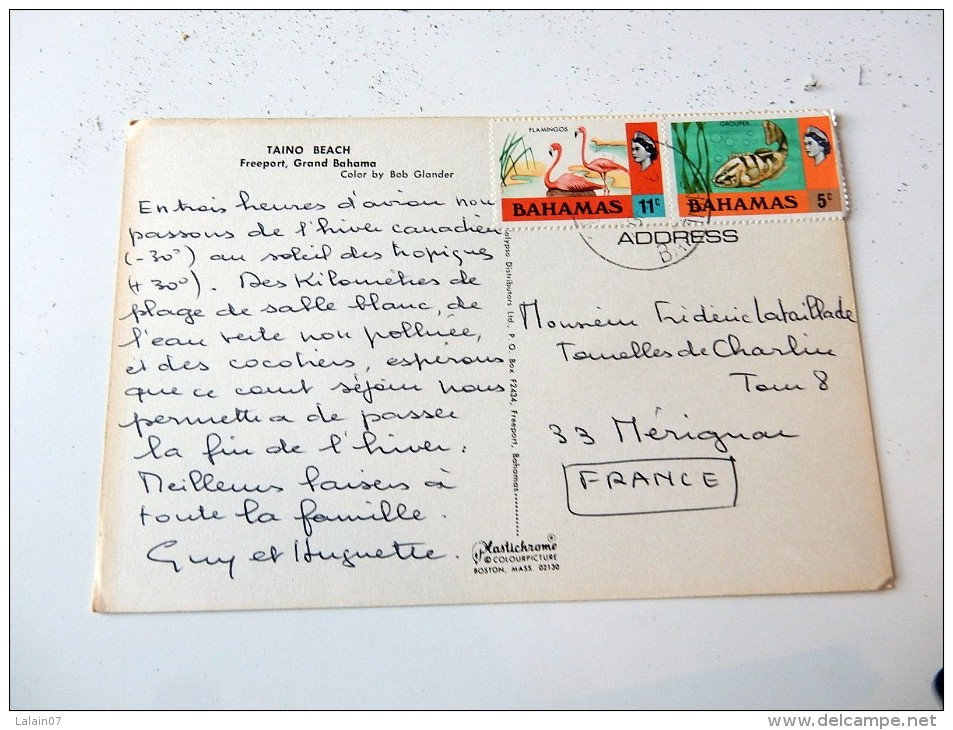 TAINO BEACH
Freeport, Grand Bahama
Color by Bob Glander
En trois heures d'avion nous
passons de l'hiver canadien
(-30°) au soleil des tropiques
(+30°). Des Kilomètres de
plage de sable blanc, de
l'eau verte non polluée,
et des cocotiers, espérons
que ce court séjour nous
permettra de passer
la fin de l'hiver.
Meilleurs baisers à
toute la famille.
Guy et Huguette.
Calypso Distributors Ltd., P.O. Box F2434, Freeport, Bahamas
Plastichrome®
© COLOURPICTURE
BOSTON, MASS. 02130
FLAMINGOS
BAHAMAS 11c
GROUPER
BAHAMAS 5c
ADDRESS
Monsieur Frédéric Lataillade
Tourelles de Charlin
Tour 8
33 Mérignac
FRANCE
Lalain07
www.delcampe.net